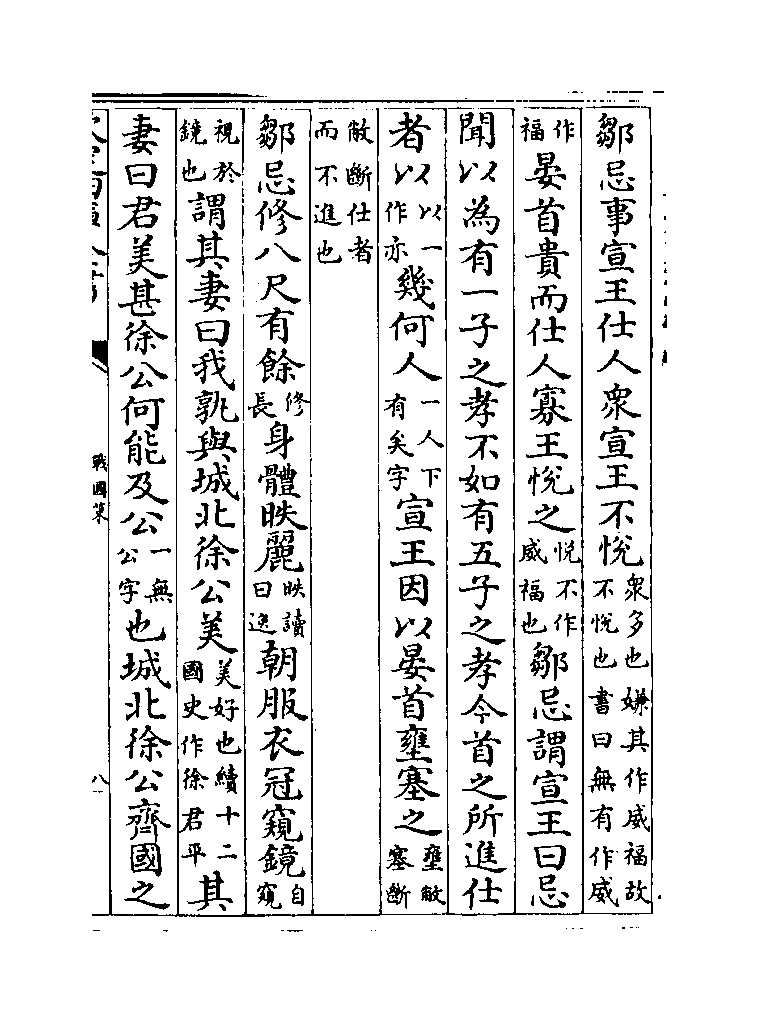 鄒忌事宣王仕人衆宣王不悅衆多也嫌其作威福故不悅也書曰無有作威
作福晏首貴而仕人寡王悅之悅不作威福也鄒忌謂宣王曰忌
聞以為有一子之孝不如有五子之孝今首之所進仕
者以以一作亦幾何人一人下有矣字宣王因以晏首壅塞之壅敝塞斷
敝斷仕者而不進也
鄒忌修八尺有餘修長身體昳麗昳讀曰逸朝服衣冠窺鏡自窺
視於鏡也謂其妻曰我孰與城北徐公美美好也續十二國史作徐君平其
妻曰君美甚徐公何能及公一無公字也城北徐公齊國之
戰國策
八